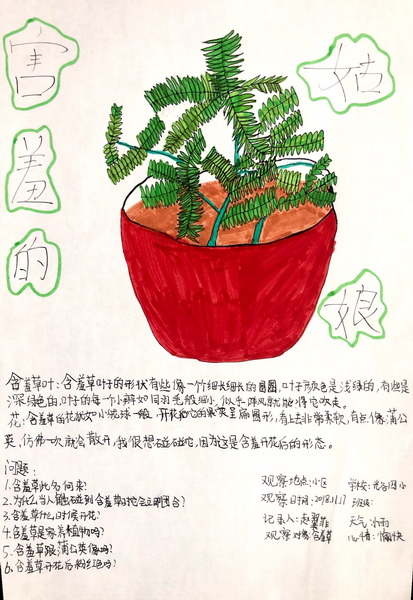 害羞的
姑娘
含羞草叶：含羞草叶子的形状有些像一个细长细长的圆圈，叶子颜色是浅绿的，有些是
深绿色的，叶子的每一小瓣如同羽毛般细小，似乎阵风就能将它吹走。
花：含羞草的花状如小绒球一般，开花后它的果实呈扁圆形，看上去非常柔软，有点像蒲公
英，仿佛一吹就会散开，我很想碰碰它，因为这是含羞开花后的形态。
问题：
1.含羞草此名何来？
2.为什么当人触碰到含羞草时它会立刻闭合？
3.含羞草什么时候开花？
4.含羞草是家养植物吗？
5.含羞草跟蒲公英像吗？
6.含羞草开花后粉红色吗？
观察地点：小区
学校：光谷四小
观察时间：2018.11.17
班级：
记录人：赵
天气：小雨
观察对象：含羞草
心情：愉快